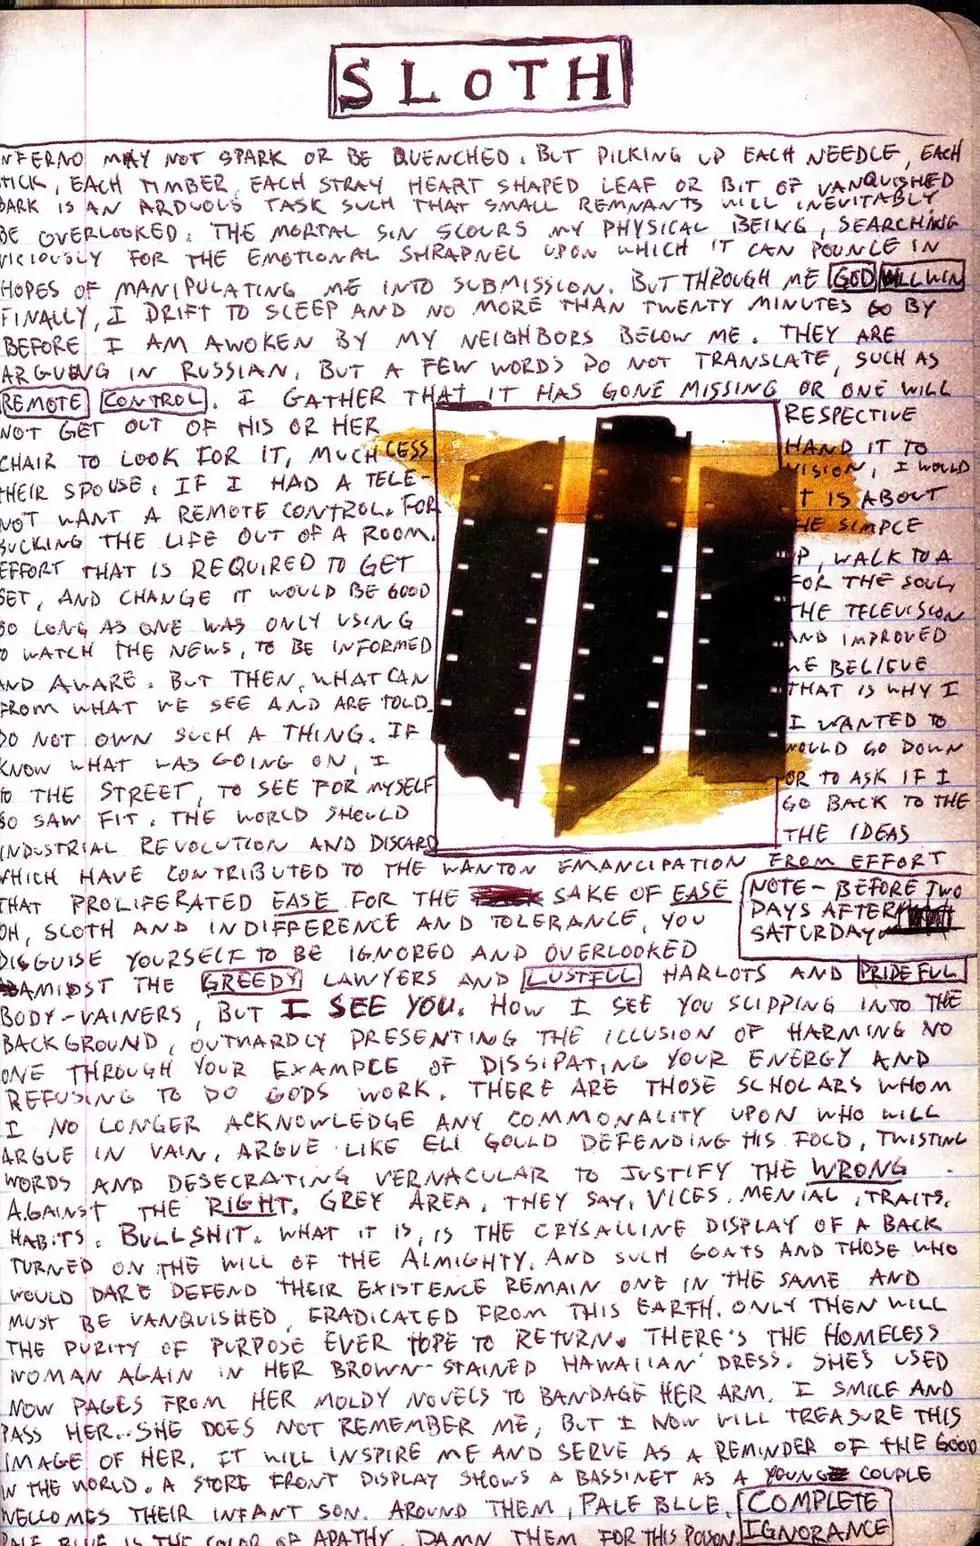 SLOTH
NFERNO MAY NOT SPARK OR BE QUENCHED. BUT PICKING UP EACH NEEDLE, EACH
TICK, EACH TIMBER, EACH STRAY HEART SHAPED LEAF OR BIT OF VANQUISHED
BARK IS AN ARDUOUS TASK SUCH THAT SMALL REMNANTS WILL INEVITABLY
BE OVERLOOKED. THE MORTAL SIN SCOURS MY PHYSICAL BEING, SEARCHING
VICIOUSLY FOR THE EMOTIONAL SHRAPNEL UPON WHICH IT CAN POUNCE IN
HOPES OF MANIPULATING ME INTO SUBMISSION. BUT THROUGH ME GOD WILL WIN
FINALLY, I DRIFT TO SLEEP AND NO MORE THAN TWENTY MINUTES GO BY
BEFORE I AM AWOKEN BY MY NEIGHBORS BELOW ME. THEY ARE
ARGUING IN RUSSIAN, BUT A FEW WORDS DO NOT TRANSLATE, SUCH AS
REMOTE CONTROL. I GATHER THAT IT HAS GONE MISSING OR ONE WILL
NOT GET OUT OF HIS OR HER RESPECTIVE
CHAIR TO LOOK FOR IT, MUCH CESS HAND IT TO
THEIR SPOUSE. IF I HAD A TELE- VISION, I WOULD
NOT WANT A REMOTE CONTROL. FOR IT IS ABOUT
SUCKING THE LIFE OUT OF A ROOM. HE SIMPLE
EFFORT THAT IS REQUIRED TO GET P, WALK TO A
SET, AND CHANGE IT WOULD BE GOOD FOR THE SOUL,
SO LONG AS ONE WAS ONLY USING THE TELEVISION
O WATCH THE NEWS, TO BE INFORMED AND IMPROVED
AND AWARE. BUT THEN, WHAT CAN WE BELIEVE
FROM WHAT WE SEE AND ARE TOLD. THAT IS WHY I
DO NOT OWN SUCH A THING. IF I WANTED TO
KNOW WHAT WAS GOING ON, I WOULD GO DOWN
TO THE STREET, TO SEE FOR MYSELF OR TO ASK IF I
SO SAW FIT. THE WORLD SHOULD GO BACK TO THE
INDUSTRIAL REVOLUTION AND DISCARD THE IDEAS
WHICH HAVE CONTRIBUTED TO THE WANTON EMANCIPATION FROM EFFORT
THAT PROLIFERATED EASE FOR THE SAKE OF EASE
OH, SLOTH AND INDIFFERENCE AND TOLERANCE, YOU
DISGUISE YOURSELF TO BE IGNORED AND OVERLOOKED
NOTE- BEFORE TWO
DAYS AFTER
SATURDAY
AMIDST THE GREEDY LAWYERS AND LUSTFUL HARLOTS AND PRIDEFUL
BODY-VAINERS, BUT I SEE YOU. HOW I SEE YOU SLIPPING INTO THE
BACKGROUND, OUTWARDLY PRESENTING THE ILLUSION OF HARMING NO
ONE THROUGH YOUR EXAMPLE OF DISSIPATING YOUR ENERGY AND
REFUSING TO DO GODS WORK. THERE ARE THOSE SCHOLARS WHOM
I NO LONGER ACKNOWLEDGE ANY COMMONALITY UPON WHO WILL
ARGUE IN VAIN, ARGUE LIKE ELI GOULD DEFENDING HIS FOLD, TWISTING
WORDS AND DESECRATING VERNACULAR TO JUSTIFY THE WRONG
AGAINST THE RIGHT. GREY AREA, THEY SAY. VICES. MENIAL TRAITS.
HABITS. BULLSHIT. WHAT IT IS, IS THE CRYSALLINE DISPLAY OF A BACK
TURNED ON THE WILL OF THE ALMIGHTY. AND SUCH GOATS AND THOSE WHO
WOULD DARE DEFEND THEIR EXISTENCE REMAIN ONE IN THE SAME AND
MUST BE VANQUISHED, ERADICATED FROM THIS EARTH. ONLY THEN WILL
THE PURITY OF PURPOSE EVER HOPE TO RETURN. THERE'S THE HOMELESS
WOMAN AGAIN IN HER BROWN-STAINED HAWAIIAN DRESS. SHE'S USED
NOW PAGES FROM HER MOLDY NOVELS TO BANDAGE HER ARM. I SMILE AND
PASS HER. SHE DOES NOT REMEMBER ME, BUT I NOW WILL TREASURE THIS
IMAGE OF HER. IT WILL INSPIRE ME AND SERVE AS A REMINDER OF THE GOOD
IN THE WORLD. A STORE FRONT DISPLAY SHOWS A BASSINET AS A YOUNG COUPLE
WELCOMES THEIR INFANT SON. AROUND THEM, PALE BLUE. COMPLETE
PALE BLUE IS THE COLOR OF APATHY. DAMN THEM FOR THIS POISON. IGNORANCE